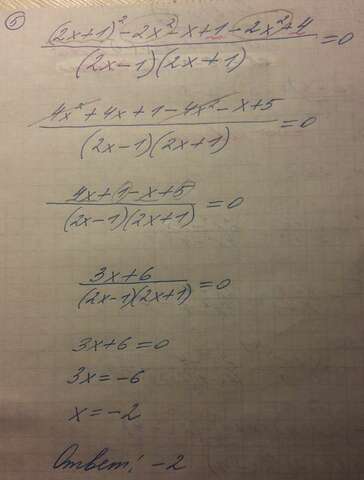 5
(2x+1)²-2x²-x+1-2x²+4 / (2x-1)(2x+1) =0
4x²+4x+1-4x²-x+5 / (2x-1)(2x+1) =0
4x+1-x+5 / (2x-1)(2x+1) =0
3x+6 / (2x-1)(2x+1) =0
3x+6=0
3x=-6
x=-2
Ответ: -2